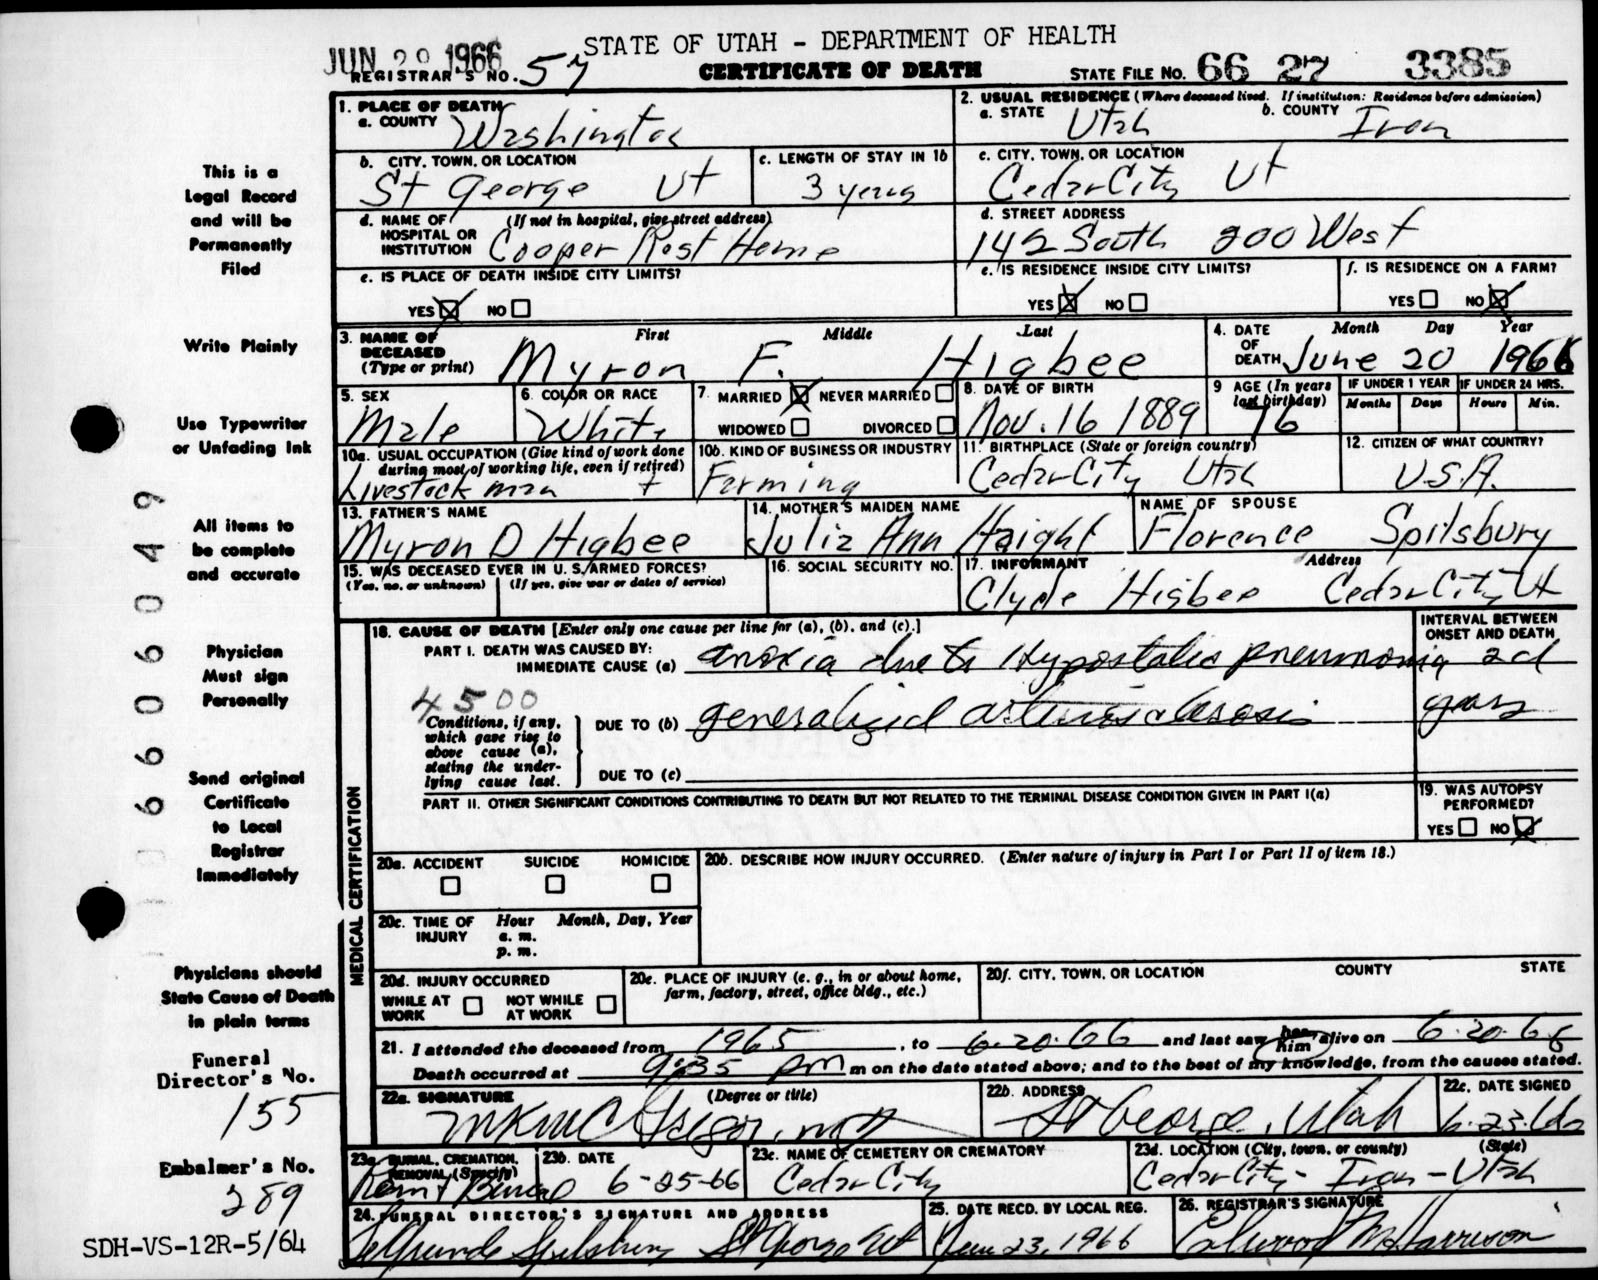 JUN 29 1966
STATE OF UTAH - DEPARTMENT OF HEALTH
REGISTRAR'S NO. 57
CERTIFICATE OF DEATH
STATE FILE NO. 66 27 3385
1. PLACE OF DEATH
a. COUNTY Washington
2. USUAL RESIDENCE (Where deceased lived. If institution: Residence before admission)
a. STATE Utah b. COUNTY Iron
b. CITY, TOWN, OR LOCATION St George Ut
c. LENGTH OF STAY IN 1b 3 years
c. CITY, TOWN, OR LOCATION Cedar City Ut
d. NAME OF HOSPITAL OR INSTITUTION (If not in hospital, give street address) Cooper Rest Home
d. STREET ADDRESS 142 South 200 West
e. IS PLACE OF DEATH INSIDE CITY LIMITS?
YES NO
e. IS RESIDENCE INSIDE CITY LIMITS?
YES NO
f. IS RESIDENCE ON A FARM?
YES NO
3. NAME OF DECEASED (Type or print) First Middle Last
Myron F. Higbee
4. DATE OF DEATH Month Day Year
June 20 1966
5. SEX Male
6. COLOR OR RACE White
7. MARRIED NEVER MARRIED
WIDOWED DIVORCED
8. DATE OF BIRTH Nov. 16 1889
9 AGE (In years last birthday) 76
IF UNDER 1 YEAR Months Days
IF UNDER 24 HRS. Hours Min.
10a. USUAL OCCUPATION (Give kind of work done during most of working life, even if retired) Livestock man +
10b. KIND OF BUSINESS OR INDUSTRY Farming
11. BIRTHPLACE (State or foreign country) Cedar City Utah
12. CITIZEN OF WHAT COUNTRY? U.S.A.
13. FATHER'S NAME Myron D Higbee
14. MOTHER'S MAIDEN NAME Julia Ann Haight
NAME OF SPOUSE Florence Spilsbury
15. WAS DECEASED EVER IN U.S. ARMED FORCES?
(Yes, no, or unknown) (If yes, give war or dates of service)
16. SOCIAL SECURITY NO.
17. INFORMANT Address
Clyde Higbee Cedar City Ut
MEDICAL CERTIFICATION
18. CAUSE OF DEATH [Enter only one cause per line for (a), (b), and (c).]
INTERVAL BETWEEN ONSET AND DEATH
PART I. DEATH WAS CAUSED BY:
IMMEDIATE CAUSE (a) anoxia due to Hypostatic pneumonia 2d
4500
Conditions, if any, which gave rise to above cause (a), stating the underlying cause last.
DUE TO (b) generalized arteriosclerosis years
DUE TO (c)
PART II. OTHER SIGNIFICANT CONDITIONS CONTRIBUTING TO DEATH BUT NOT RELATED TO THE TERMINAL DISEASE CONDITION GIVEN IN PART I(a)
19. WAS AUTOPSY PERFORMED?
YES NO
20a. ACCIDENT SUICIDE HOMICIDE
20b. DESCRIBE HOW INJURY OCCURRED. (Enter nature of injury in Part I or Part II of item 18.)
20c. TIME OF INJURY Hour Month, Day, Year
a. m.
p. m.
20d. INJURY OCCURRED
WHILE AT WORK NOT WHILE AT WORK
20e. PLACE OF INJURY (e. g., in or about home, farm, factory, street, office bldg., etc.)
20f. CITY, TOWN, OR LOCATION COUNTY STATE
21. I attended the deceased from 1965, to 6-20-66 and last saw her/him alive on 6-20-66
Death occurred at 9:35 pm m on the date stated above; and to the best of my knowledge, from the causes stated.
22a. SIGNATURE (Degree or title)
22b. ADDRESS St George, Utah
22c. DATE SIGNED 6-23-66
23a BURIAL, CREMATION, REMOVAL (Specify) Burial
23b. DATE 6-25-66
23c. NAME OF CEMETERY OR CREMATORY Cedar City
23d. LOCATION (City, town, or county) (State) Cedar City - Iron - Utah
24. FUNERAL DIRECTOR'S SIGNATURE AND ADDRESS
Spilsbury St George Ut
25. DATE RECD. BY LOCAL REG. June 23, 1966
26. REGISTRAR'S SIGNATURE
This is a
Legal Record
and will be
Permanently
Filed
Write Plainly
Use Typewriter
or Unfading Ink
All items to
be complete
and accurate
Physician
Must sign
Personally
Send original
Certificate
to Local
Registrar
Immediately
Physicians should
State Cause of Death
in plain terms
Funeral
Director's No.
155
Embalmer's No.
289
SDH-VS-12R-5/64